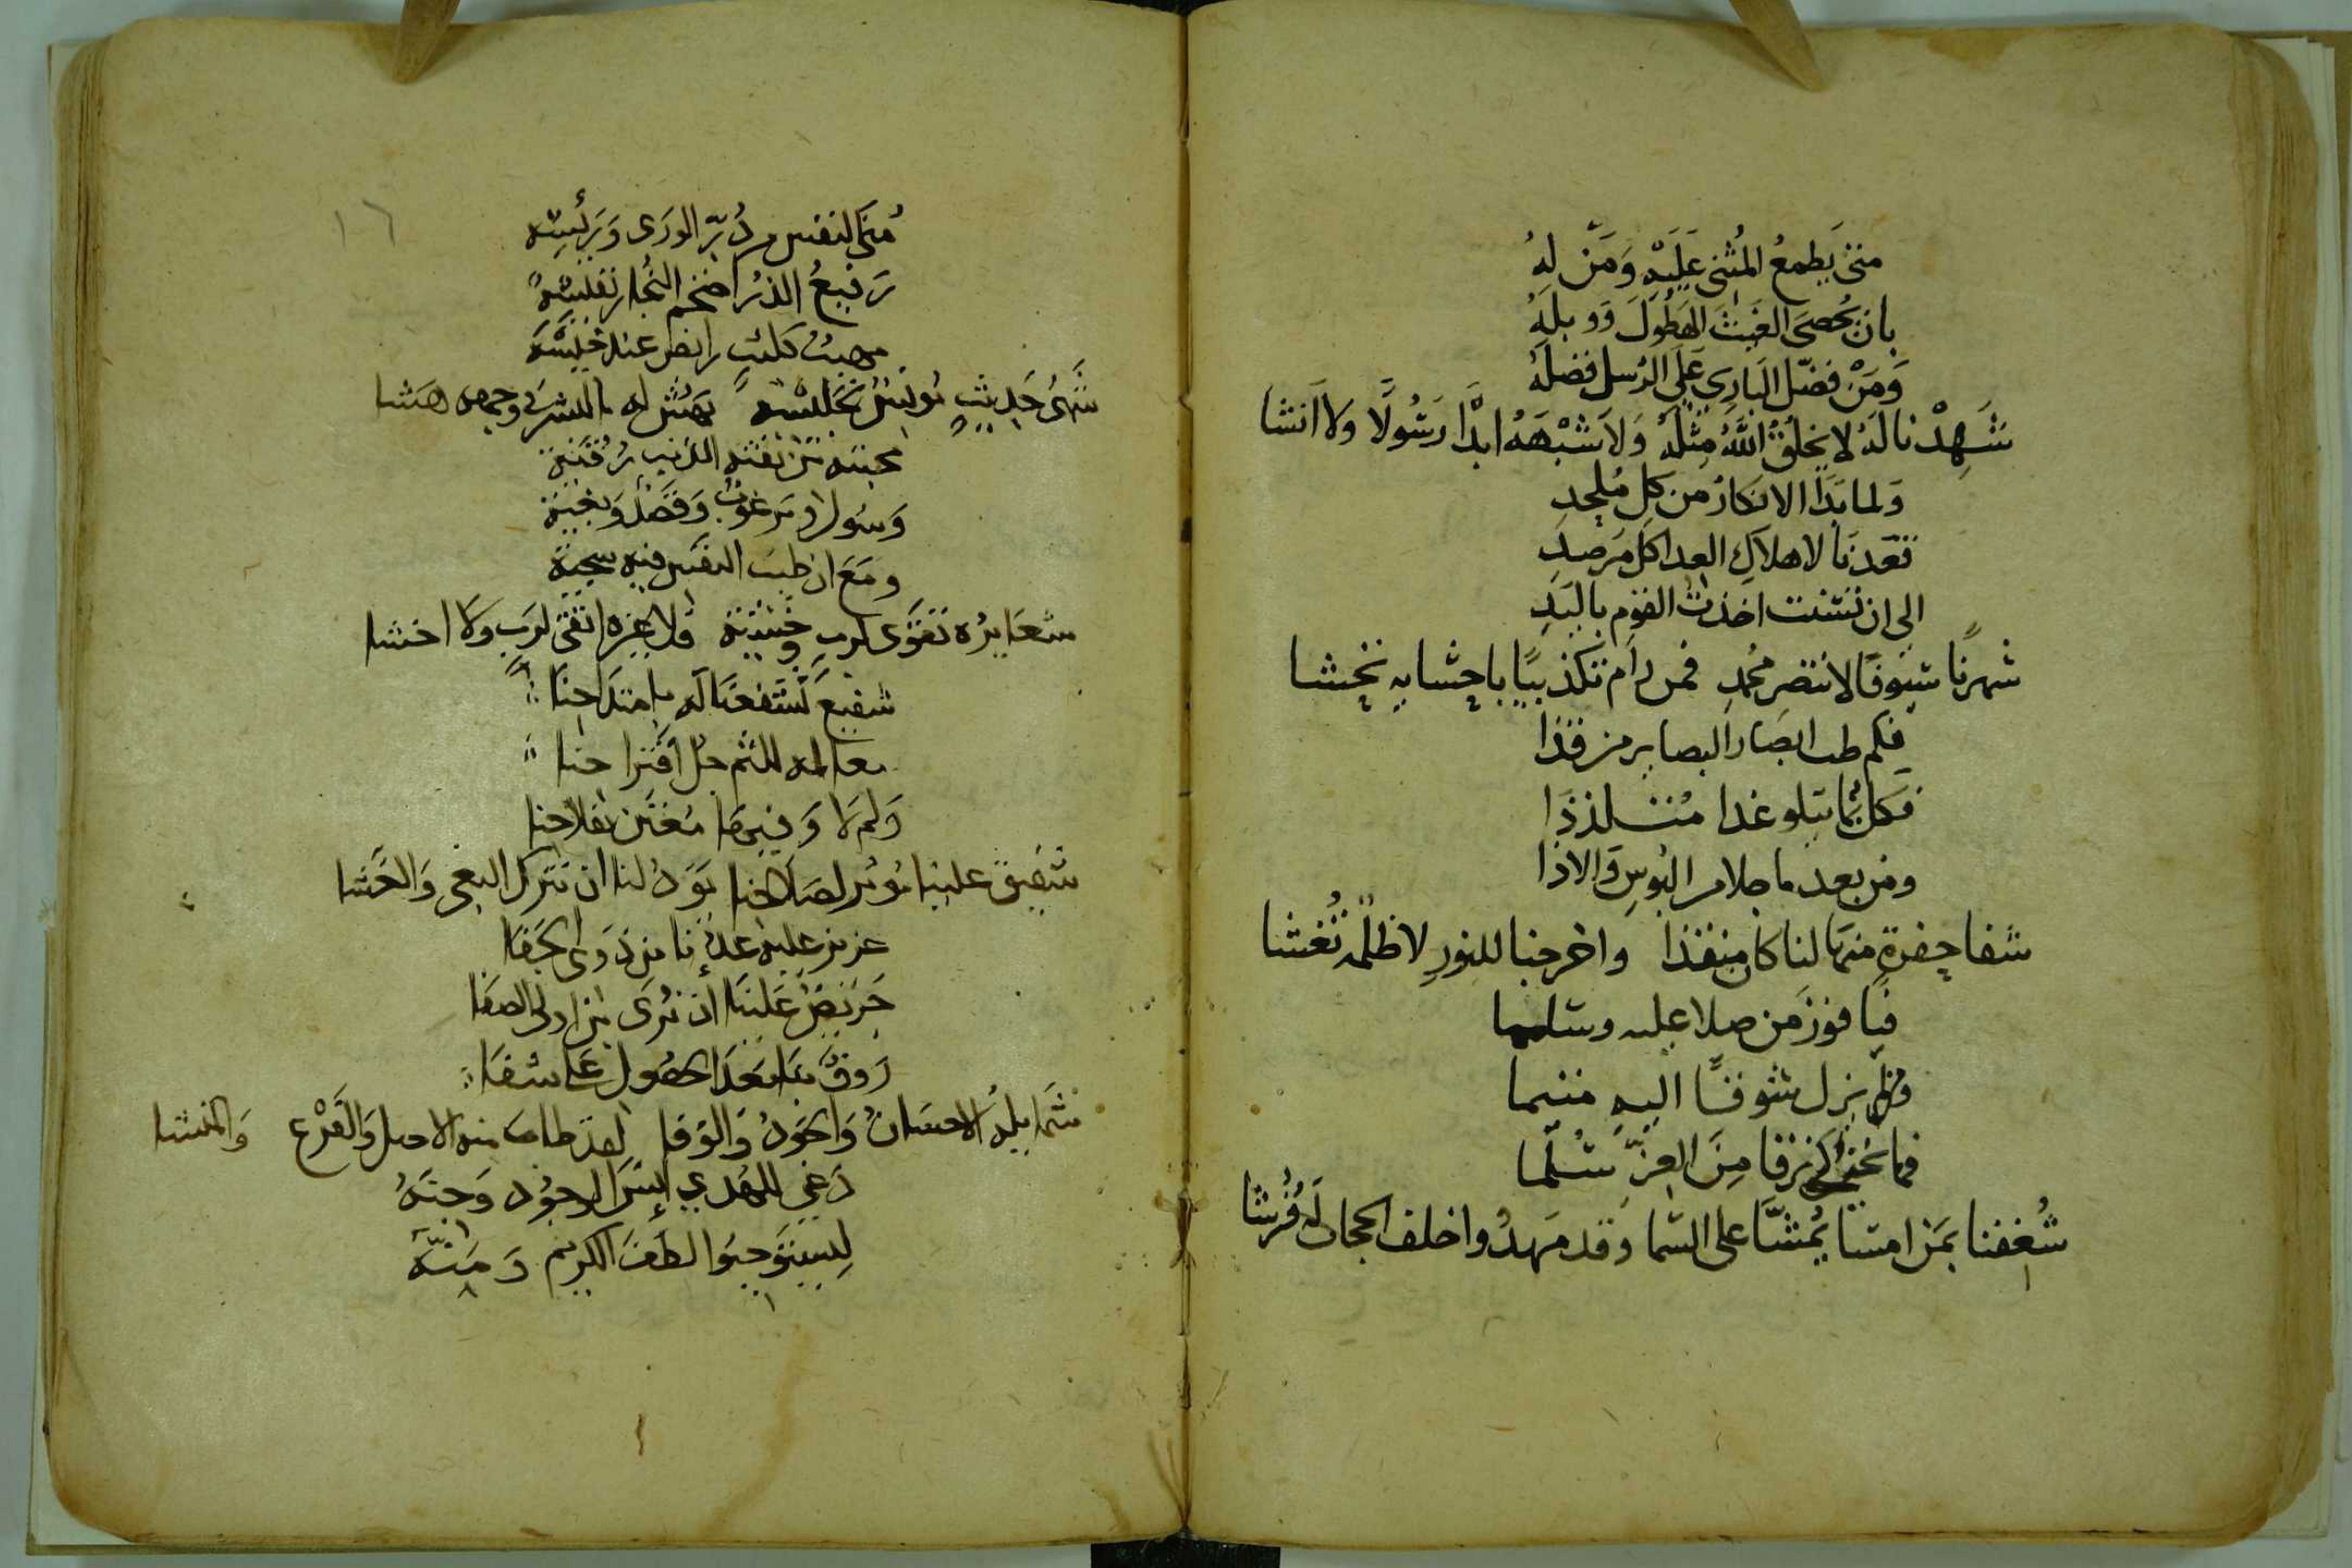 متى يَطمعُ المُثني عَلَيْهِ وَمَن لهُ
بان يُحصىَ الغيثَ الهَطُولَ وَوبلهُ
وَمَنْ فضّل البَارِى عَلَى الرُسل فضلهُ
شَهِدْنا لَهُ لا يخلُقُ اللَّهُ مِثْلَهُ وَلا شَبْهَهُ ابدًا رَسُولًا ولا انشا
وَلما بَدَا الانكارُ من كل مُلحِدِ
قعَدنا لاهلاكِ العدا كل مَرصدِ
الى ان اخذت القوم باليَدِ
شهرنًا سُيوفًا لانتصرِ مُحمدِ فمن رام تكذيبًا باحشايه نخشا
فكم طب ابصار البصاير من قذا
فكل بما يتلو غدا متلذذا
ومن بعد ما جلا من البُوسِ وَالاذا
شفا حفرةٍ منها لنا كان منقذا واخرجنا للنورِ لا ظلمَه تُغشا
فيا فوزَ من صلا عليه وسلما
يزل شوقًا اليهِ متيما
فما نحن نرقا مِنَ العِزّ سُلّما
شُغفنا بمَن امسَا يُمشَّا على السّما وَقد مَهدُوا خلف الحجاب لهُ فُرشا
١٦
مُنَى النفسِ من بَرّ الوَرَى وَبَرئيسِه
رَفيعُ الذرُا ضخم النُجار نفليسهُ
شَهىُ حَدِيثٍ مُونسٌ لجَليسه يَهُشُّ له
محبته
وَسُول وَمَرغوب وَقصدٌ وَبغيَة
ومَعَ ان طيبَ النفس فيه سجية
شعَايرُه تقوَى لربٍ وخَشيَة فلا غيره اتقى لرَبٍ ولا اخشا
شفيعَ تَشفعنَا له بامتداحِنَا
معالمه للثم جل اقتراحنا
وَلم لا وَفيهَا مُعتَن بفلاحنا
شَفيق علينا مُوثر لصَلاحنا يوَدُ لنا ان نترك البغى وَالغَشا
عزيز عليه عَدّنا من ذوى الجَفا
حَريصٌ عَلَينَا ان نُرَى من اولى الصفَا
رَوفٌ بنا بَعدَ الحصُول عَلى شفَا
شَمَايلُه الاحسَانُ وَالجَودُ وَالوَفا لقد طاب منه الاصل وَالفَرْع وَالمنشا
دَعى للهُدي انسَ الوجُود وَجنَهُ
لِيستوجبُوا لطفَ الكريم وَمَنّهُ